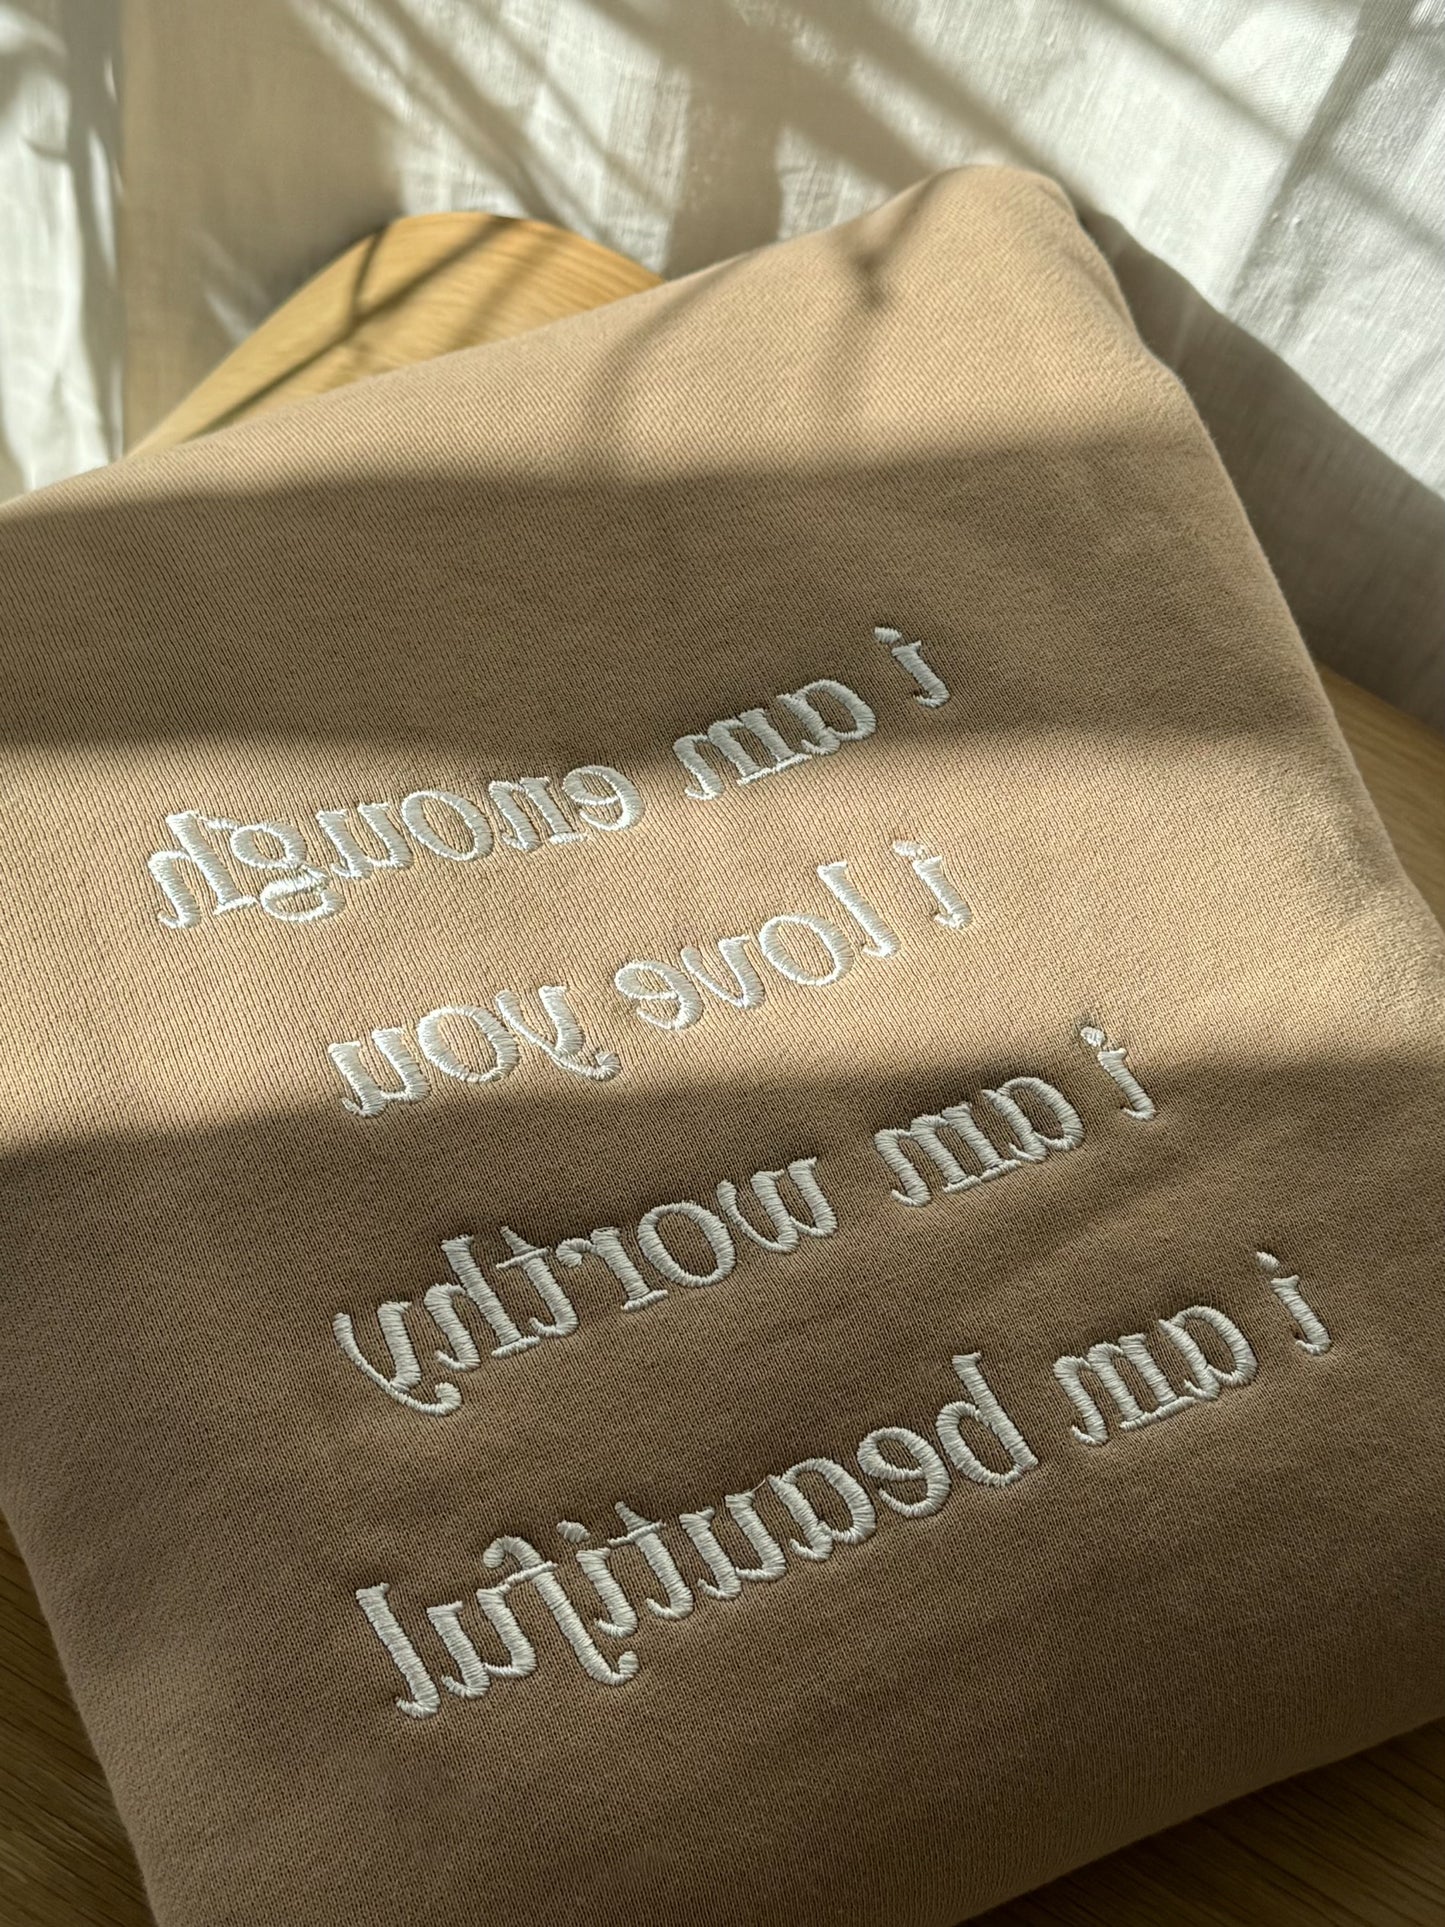 i am enough
i love you
i am worthy
i am beautiful